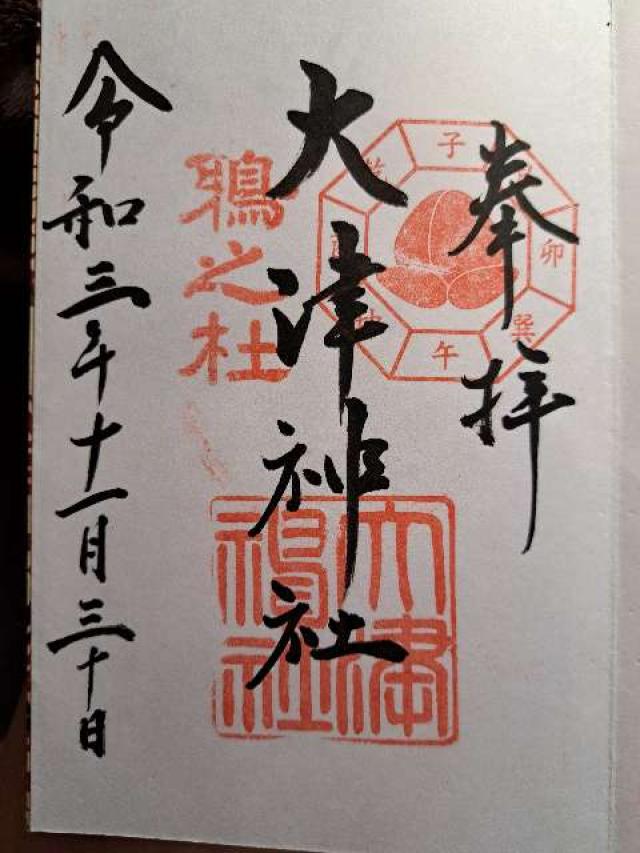 奉拝
大津神社
鴉之杜
子
卯
巽
午
令和三年十一月三十日